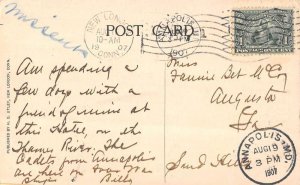 NEW LONDON
10-AM
CONN.
POST CARD
ANNAPOLIS
1907
PUBLISHED BY H. D. UTLEY, NEW LONDON, CONN.
Am spending a
few days with a
friend of mine at
this Hotel, on the
Thames River. The
Cadets from Annapolis
are here on two War
Ships Billy
Miss
Fannie Bet McCoy
Augusta
Ga
Sand Hills
ANNAPOLIS, MD.
AUG 19
3 PM
1907